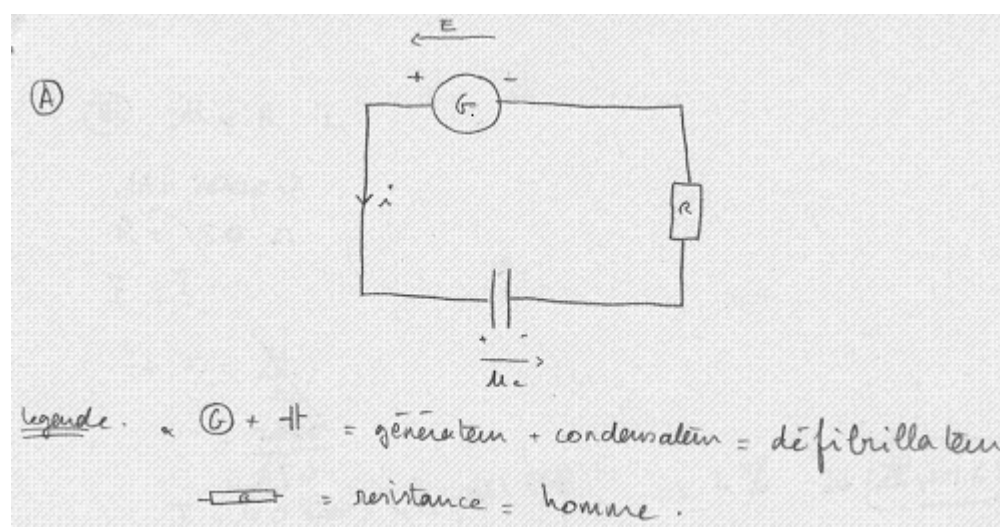 E
(A)
+ -
G
i
R
+ -
uc
légende . G + ⊣⊢ = générateur + condensateur = défibrillateur
R = resistance = homme .